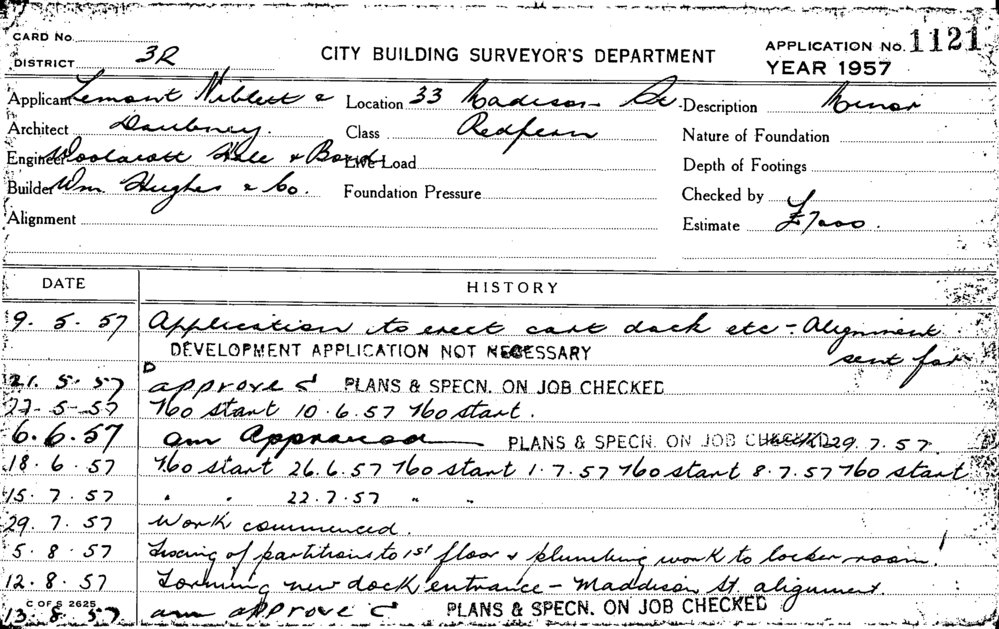 CARD No.
DISTRICT 3R
CITY BUILDING SURVEYOR'S DEPARTMENT
APPLICATION No. 1121
YEAR 1957
Applicant Lemont Niblett & Location 33 Madison St. Description Minor
Architect Daubney. Class Redfern Nature of Foundation
Engineer Woolacott Hale & Bond Live Load Depth of Footings
Builder Wm Hughes & Co. Foundation Pressure Checked by
Alignment Estimate £7000.
DATE HISTORY
9. 5. 57 Application to erect cart dock etc - Alignment
DEVELOPMENT APPLICATION NOT NECESSARY sent for
21. 5. 57 approved PLANS & SPECN. ON JOB CHECKED
27-5-57 No start 10.6.57 No start.
6.6.57 am Approved PLANS & SPECN. ON JOB CHECKED 29.7.57.
18.6.57 No start 26.6.57 No start 1.7.57 No start 8.7.57 No start
15.7.57 " " 22.7.57 " "
29.7.57 Work commenced.
5.8.57 Fixing of partitions to 1st floor & plumbing work to locker room.
12.8.57 Forming new dock entrance - Maddison St alignment.
C OF S 2625
13.8.57 am approved PLANS & SPECN. ON JOB CHECKED